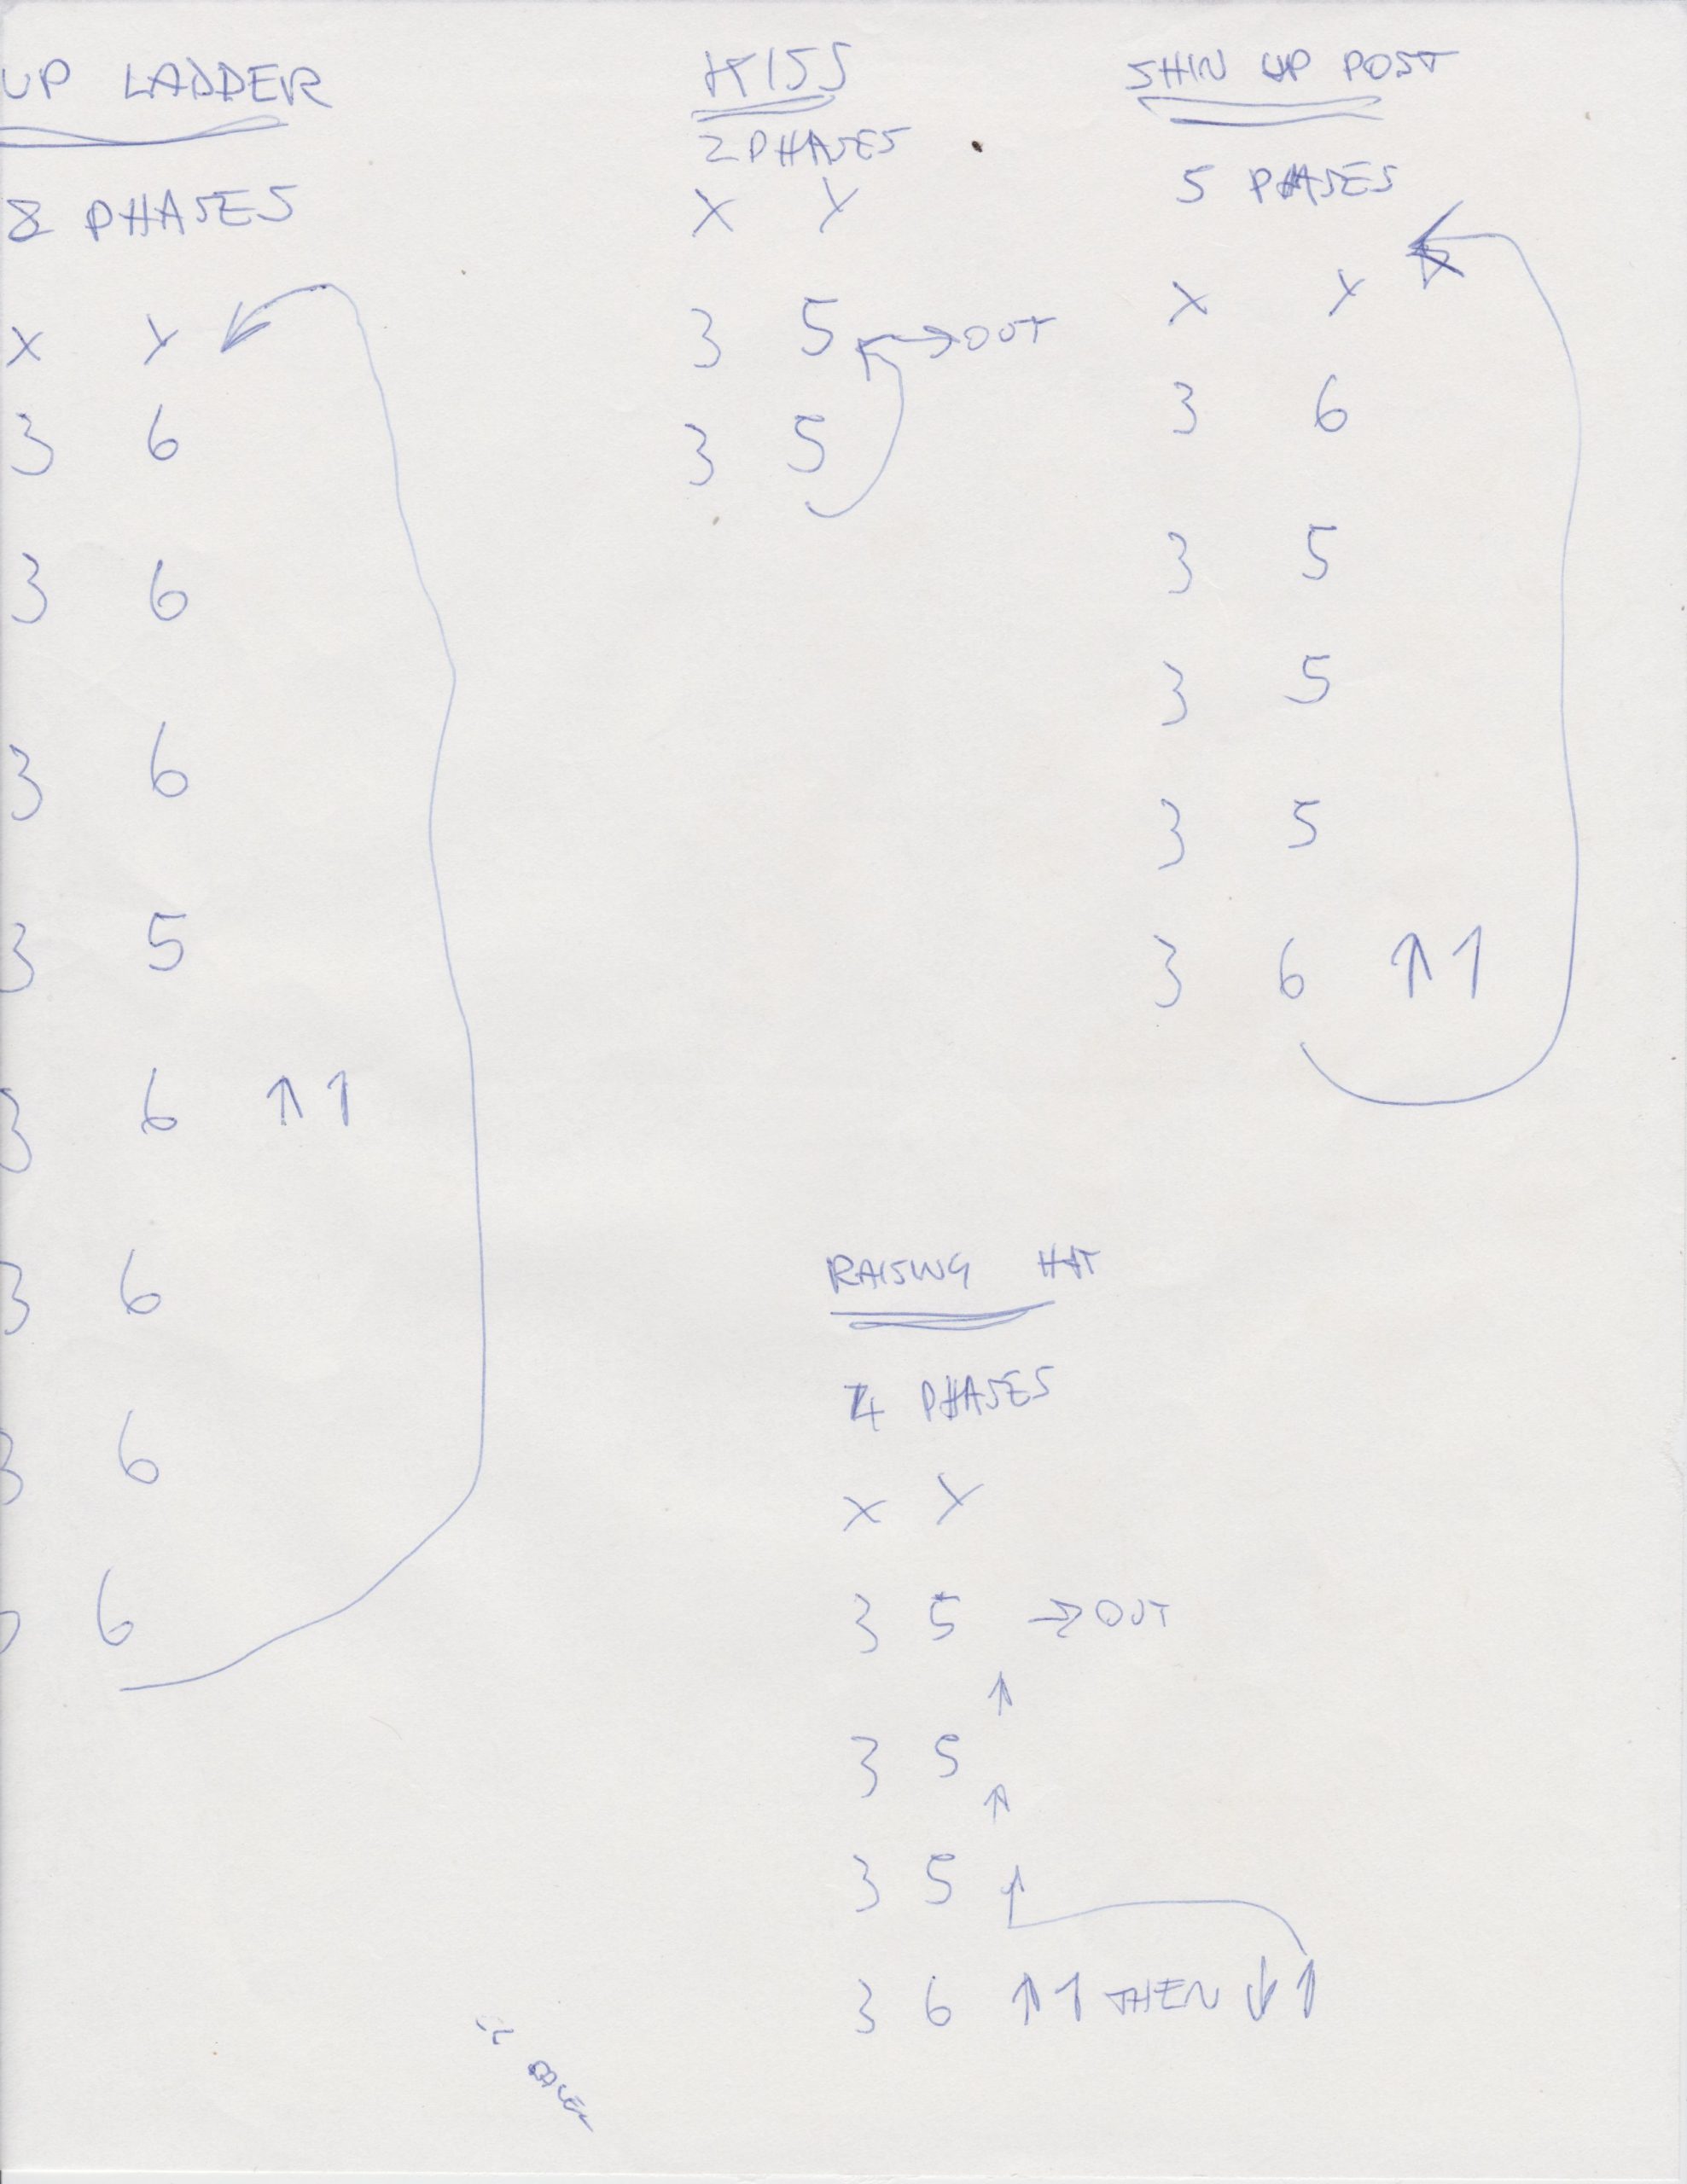 UP LADDER
8 PHASES
X Y
3 6
3 6
3 6
3 5
3 6 ↑ 1
3 6
3 6
3 6
KISS
2 PHASES
X Y
3 5 → OUT
3 5
SHIN UP POST
5 PHASES
X Y
3 6
3 5
3 5
3 5
3 6 ↑ 1
RAISING HAT
4 PHASES
X Y
3 5 → OUT
↑
3 5
↑
3 5 ↑
3 6 ↑ 1 THEN ↓ 1